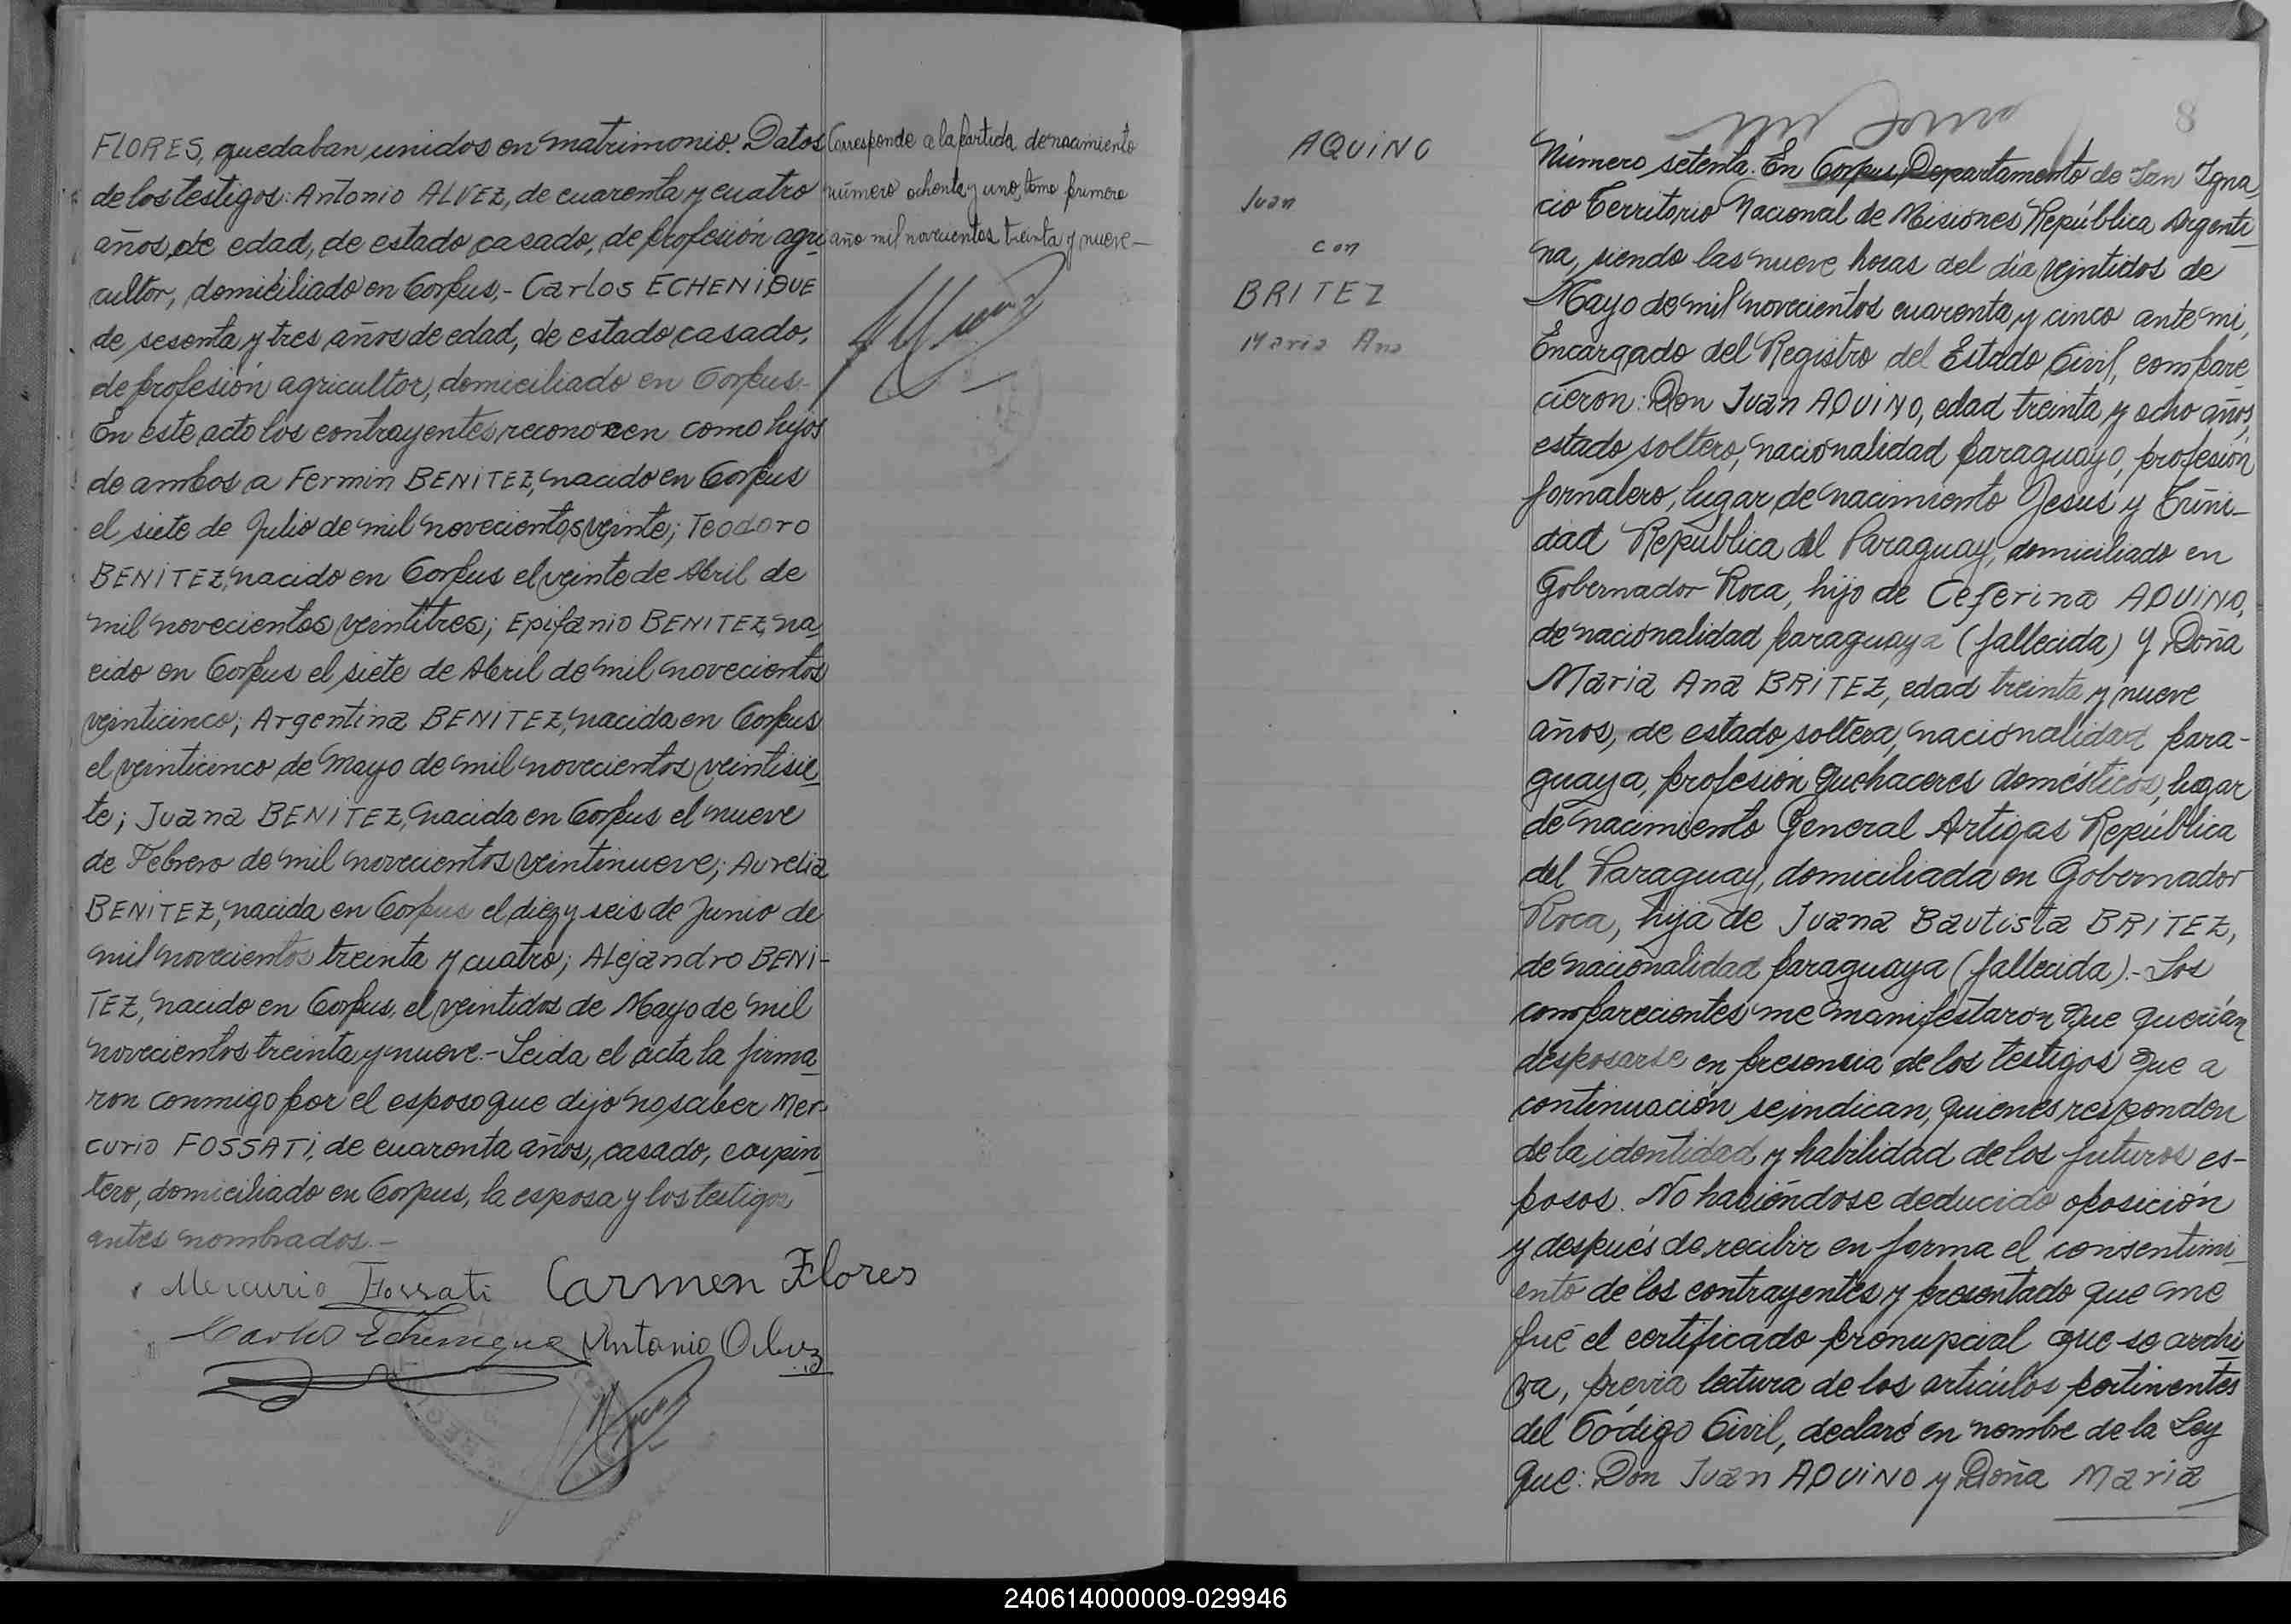 FLORES, quedaban unidos en matrimonio. Datos
de los testigos: Antonio ALVEZ, de cuarenta y cuatro
años de edad, de estado casado, de profesión agri
cultor, domiciliado en Corpus,- Carlos ECHENIQUE
de sesenta y tres años de edad, de estado casado,
de profesión agricultor, domiciliado en Corpus.-
En este acto los contrayentes reconocen como hijos
de ambos a Fermin BENITEZ, nacido en Corpus
el siete de Julio de mil novecientos veinte; Teodoro
BENITEZ, nacido en Corpus el veinte de Abril de
mil novecientos veintitres; Epifanio BENITEZ, na
cido en Corpus el siete de Abril de mil novecientos
veinticinco; Argentina BENITEZ, nacida en Corpus
el veinticinco de Mayo de mil novecientos veintisie
te; Juana BENITEZ, nacida en Corpus el nueve
de Febrero de mil novecientos veintinueve; Aurelia
BENITEZ, nacida en Corpus el diez y seis de Junio de
mil novecientos treinta y cuatro; Alejandro BENI-
TEZ, nacido en Corpus, el veintidos de Mayo de mil
novecientos treinta y nueve.- Leida el acta la firma
ron conmigo por el esposo que dijo no saber Mer-
curio FOSSATI, de cuarenta años, casado, carpin
tero, domiciliado en Corpus, la esposa y los testigos
antes nombrados.-
Mercurio Fossati Carmen Flores
Carlos Echenique Antonio
Corresponde a la partida de nacimiento
número ochenta y uno, tomo primero
año mil novecientos treinta y nueve-
AQUINO
Juan
con
BRITEZ
Maria Ana
8
Número setenta. En Corpus, Departamento de San Igna
cio Territorio Nacional de Misiones República Argenti
na, siendo las nueve horas del día veintidos de
Mayo de mil novecientos cuarenta y cinco ante mi,
Encargado del Registro del Estado Civil, compare
cieron: Don Juan AQUINO, edad treinta y ocho años,
estado soltero, nacionalidad paraguayo, profesión
jornalero, lugar de nacimiento Jesús y Trini-
dad República del Paraguay, domiciliado en
Gobernador Roca, hijo de Ceferina AQUINO,
de nacionalidad paraguaya (fallecida) y Doña
Maria Ana BRITEZ, edad treinta y nueve
años, de estado soltera, nacionalidad para-
guaya, profesión quehaceres domésticos, lugar
de nacimiento General Artigas República
del Paraguay, domiciliada en Gobernador
Roca, hija de Juana Bautista BRITEZ,
de nacionalidad paraguaya (fallecida).- Los
comparecientes me manifestaron que querían
desposarse en presencia de los testigos que a
continuación se indican, quienes responden
de la identidad y habilidad de los futuros es-
posos. No habiéndose deducido oposición
y después de recibir en forma el consentimi
ento de los contrayentes y presentado que me
fué el certificado prenupcial que se archi
va, previa lectura de los artículos pertinentes
del Código Civil, declaré en nombre de la Ley
que: Don Juan AQUINO y Doña Maria
240614000009-029946